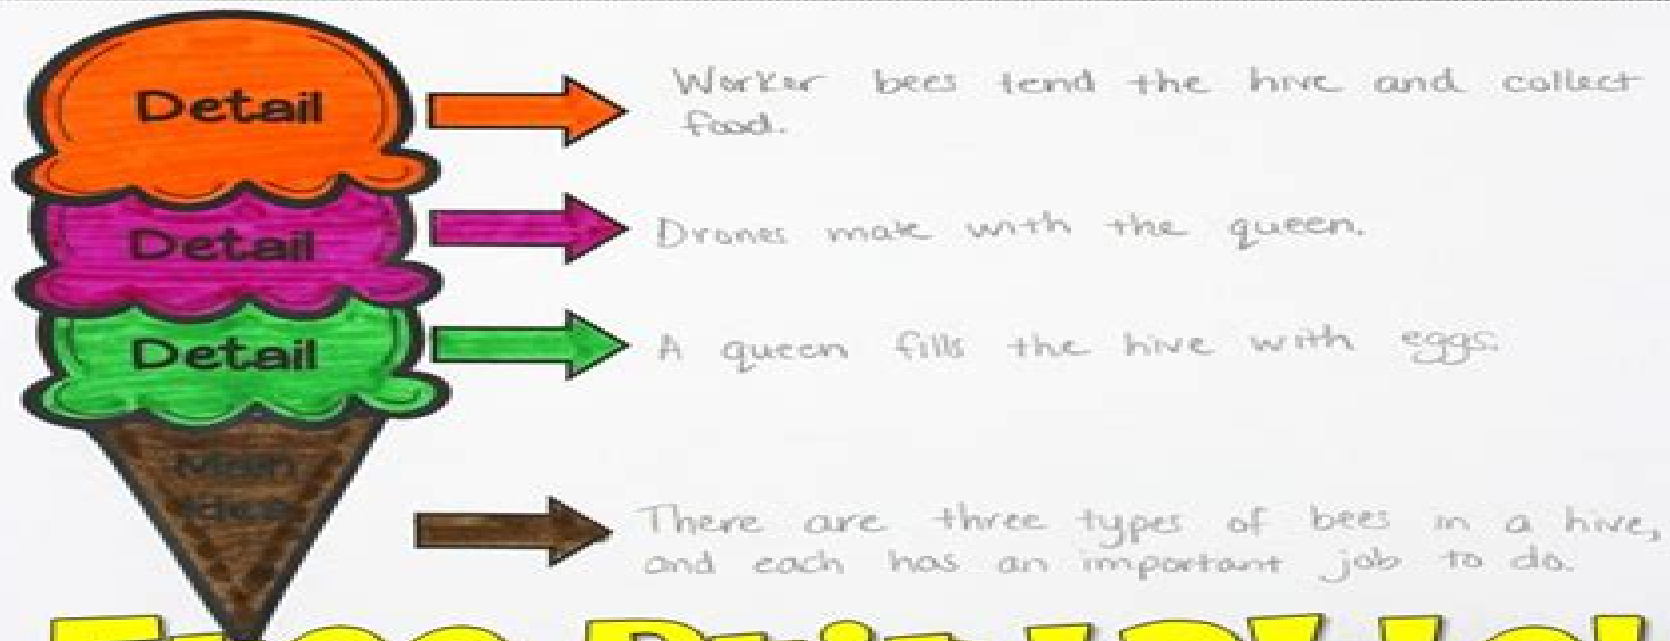 Detail
Worker bees tend the hive and collect
food.
Detail
Drones mate with the queen.
Detail
A queen fills the hive with eggs.
Main
Idea
There are three types of bees in a hive,
and each has an important job to do.
Free Printable!